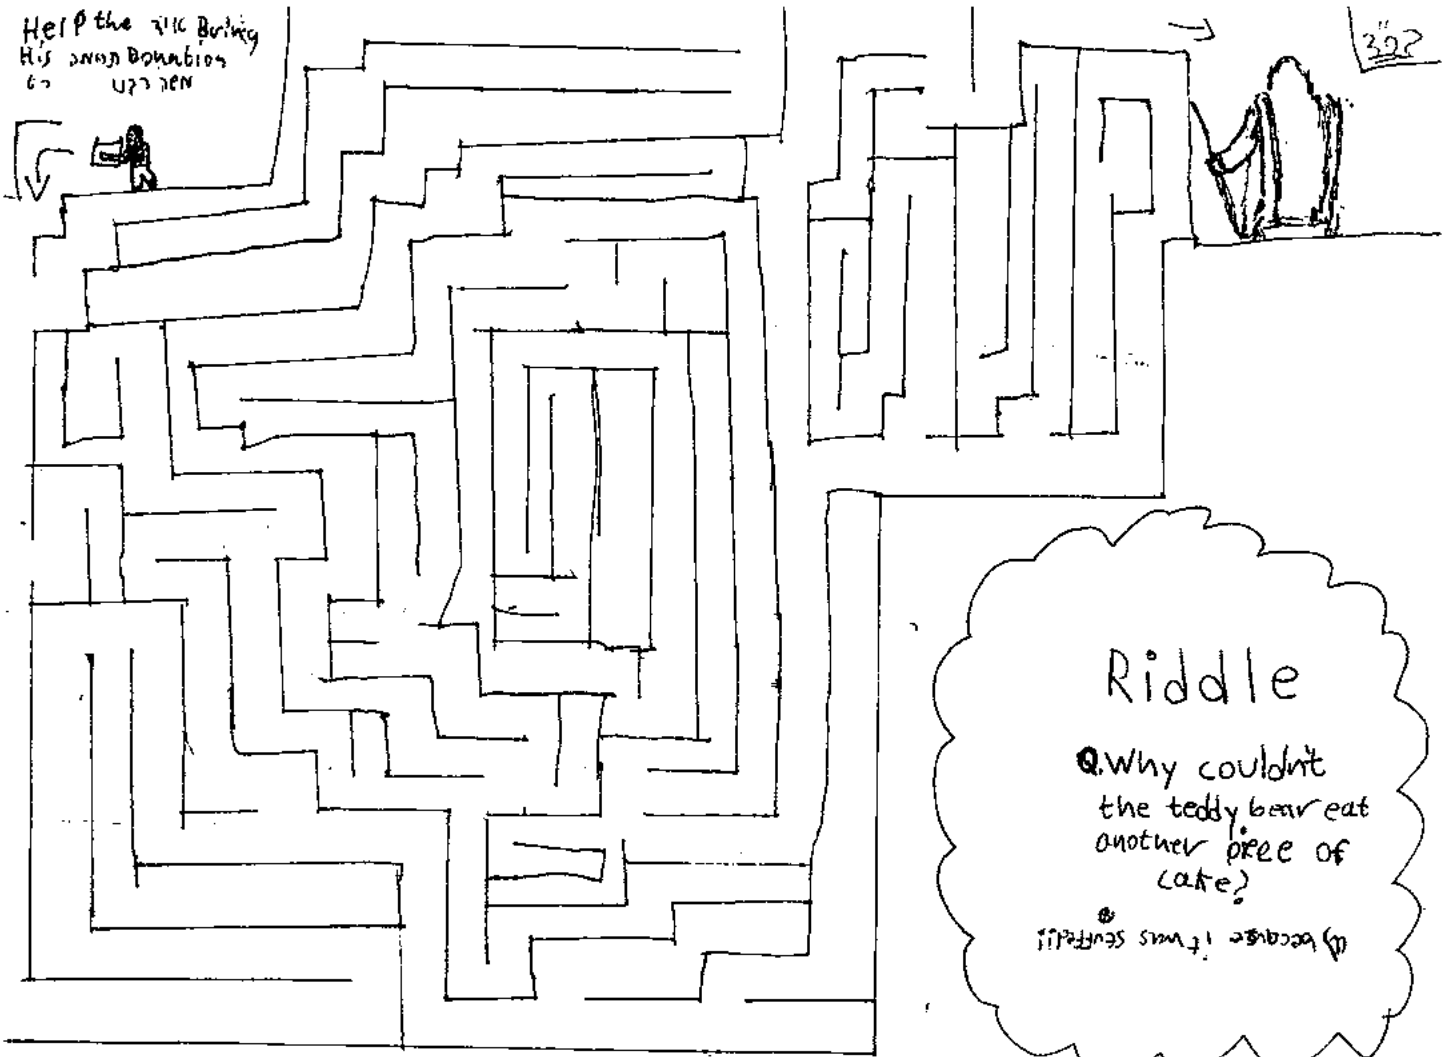 Help the איד Bring
His תמונה Donation
to משה רבנו
ספר
Riddle
Q. Why couldn't
the teddy bear eat
another piece of
cake?
a) because it was stuffed!!